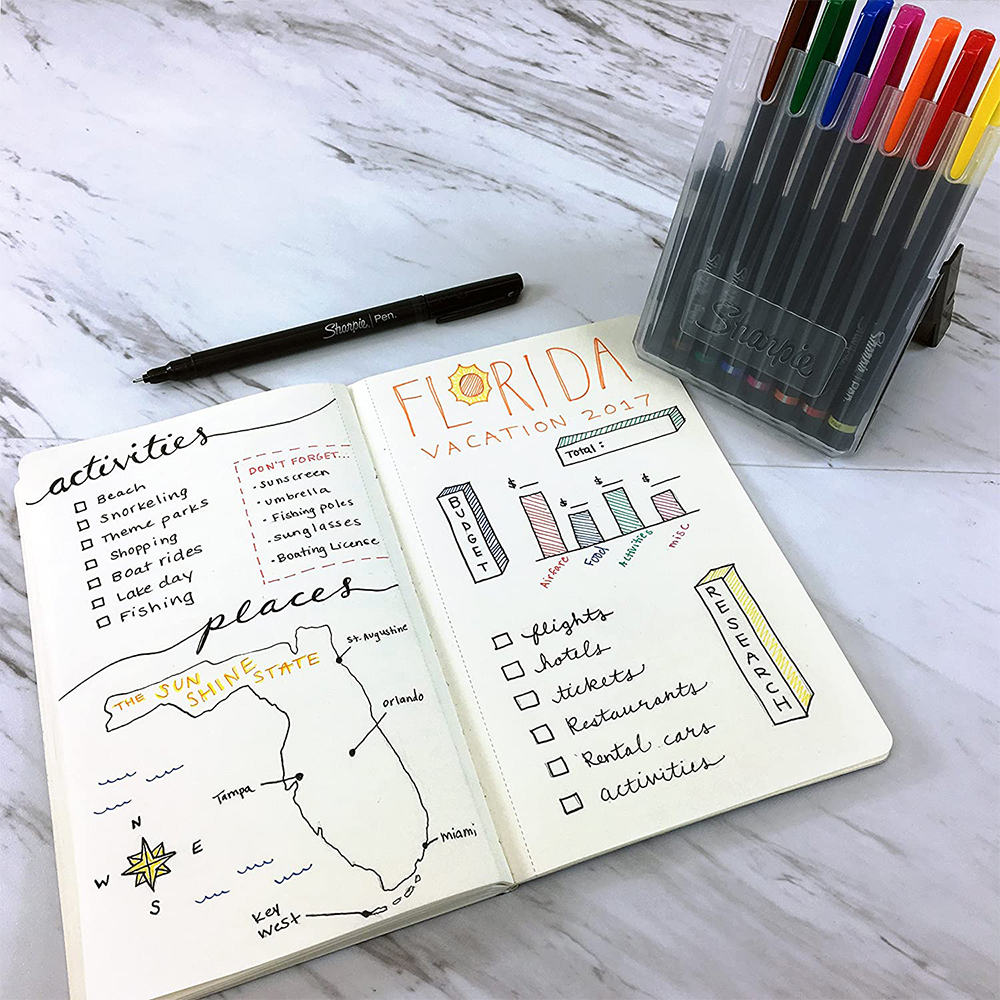 Sharpie | Pen.
Sharpie
Sharpie | Pen.
activities
Beach
Snorkeling
Theme parks
Shopping
Boat rides
Lake day
Fishing
DON'T FORGET...
• Sunscreen
• umbrella
• Fishing poles
• sunglasses
• Boating License
places
THE SUN
SHINE STATE
St. Augustine
Orlando
Tampa
miami
Key
West
N
W E
S
FLORIDA
VACATION 2017
Total:
BUDGET
$ $ $ $
Airfare Food Activities misc
RESEARCH
flights
hotels
tickets
Restaurants
Rental cars
activities